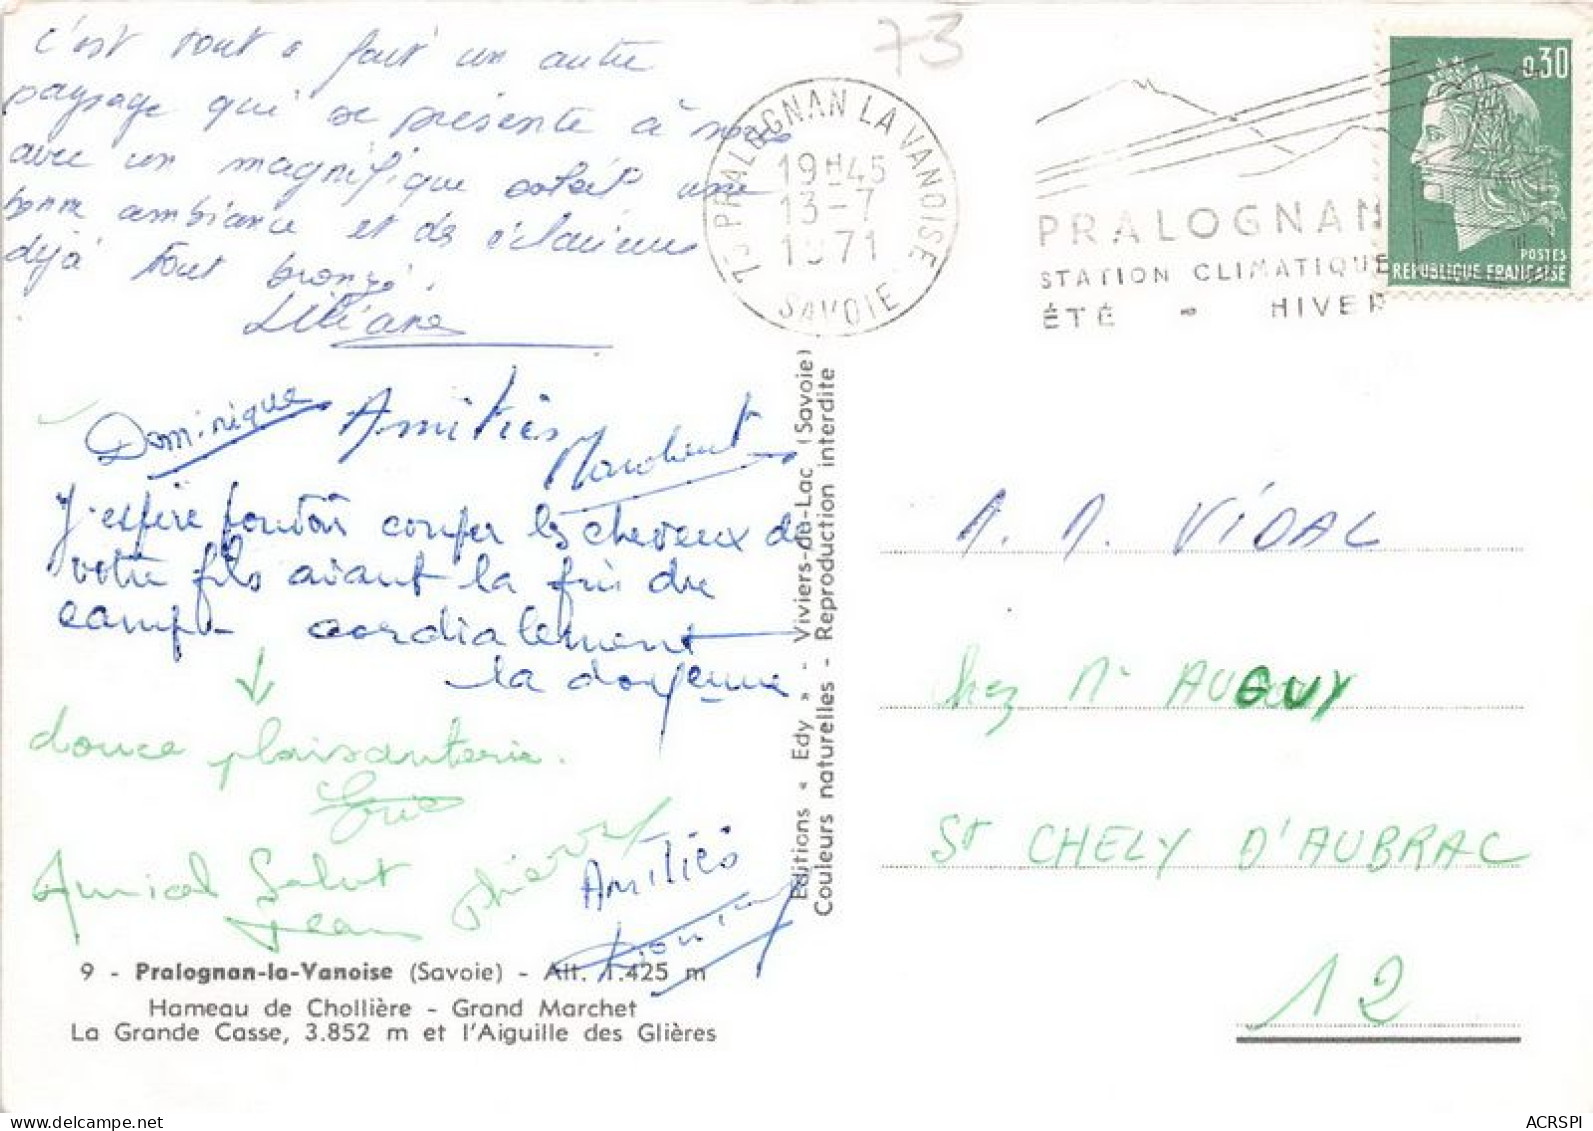 c'est tout a fait un autre
paysage qui se présente à nous
avec un magnifique soleil une
bonne ambiance et de
déjà tout bronzé.
Liliane
Dominique Amitiés
J'espère pouvoir couper les cheveux de
votre fils avant la fin du
camp - cordialement
la doyenne
douce plaisanterie.
Amical Salut
Jean Pierre
Amitiés
9 - Pralognan-la-Vanoise (Savoie) - Alt. 1.425 m
Hameau de Chollière - Grand Marchet
La Grande Casse, 3.852 m et l'Aiguille des Glières
Editions « Edy » - Viviers-du-Lac (Savoie)
Couleurs naturelles - Reproduction interdite
73
73 PRALOGNAN LA VANOISE
19H45
13-7
1971
SAVOIE
PRALOGNAN
STATION CLIMATIQUE
ÉTÉ - HIVER
0,30
POSTES
REPUBLIQUE FRANÇAISE
M. M. VIDAL
chez Mr AUGUY
St CHELY D'AUBRAC
12
ACRSPI